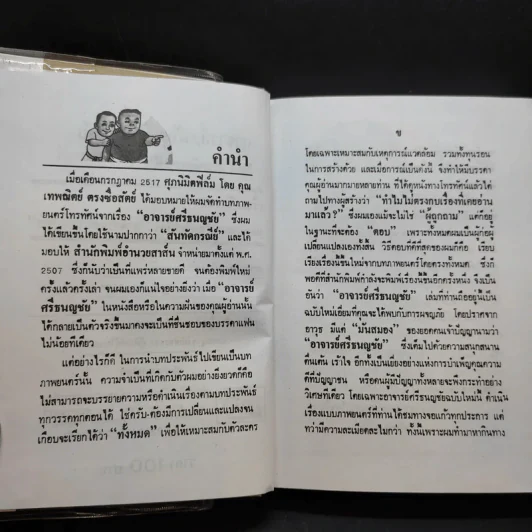 คำนำ
เมื่อเดือนกรกฎาคม 2517 ศุภนิมิตฟิล์ม โดย คุณ
เทพณิตย์ ตรงซื่อสัตย์ ได้มอบหมายให้ผมจัดทำบทภาพ-
ยนตร์โทรทัศน์จากเรื่อง "อาจารย์ศรีธนญชัย" ซึ่งผม
ได้เขียนขึ้นโดยใช้นามปากกาว่า "สันทัดกรณีย์" และได้
มอบให้ สำนักพิมพ์อำนวยสาส์น จำหน่ายมาตั้งแต่ พ.ศ.
2507 ซึ่งก็นับว่าเป็นที่แพร่หลายขายดี จนต้องพิมพ์ใหม่
ครั้งแล้วครั้งเล่า จนผมเองก็แน่ใจอย่างยิ่งว่า เมื่อ "อาจารย์
ศรีธนญชัย" ในหนังสือหรือในความฝันของคุณผู้อ่านนั้น
ได้กลายเป็นตัวจริงขึ้นมาคงจะเป็นที่ชื่นชอบของบรรดาแฟน
ไม่น้อยทีเดียว
แต่อย่างไรก็ดี ในการนำบทประพันธ์ไปเขียนเป็นบท
ภาพยนตร์นั้น ความจำเป็นที่เกิดกับตัวผมอย่างยิ่งยวดก็คือ
ไม่สามารถจะบรรยายความหรือดำเนินเรื่องตามบทประพันธ์
ทุกวรรคทุกตอนได้ ใช่ครับ-ต้องมีการเปลี่ยนและแปลงจน
เกือบจะเรียกได้ว่า "ทั้งหมด" เพื่อให้เหมาะสมกับตัวละคร
ข
โดยเฉพาะเหมาะสมกับเหตุการณ์แวดล้อม รวมทั้งทุนรอน
ในการสร้างด้วย และเมื่อการณ์เป็นดังนี้ จึงทำให้มีบรรดา
คุณผู้อ่านมากมายหลายท่าน ที่ได้ดูหนังทางโทรทัศน์แล้วได้
ถามไปทางผู้สร้างว่า "ทำไมไม่ตรงกับเรื่องที่เคยอ่าน
มาแล้ว?" ซึ่งผมเองแม้จะไม่ใช่ "ผู้ถูกถาม" แต่ก็อยู่
ในฐานะที่จะต้อง "ตอบ" เพราะทั้งหมดผมเป็นผู้ต้องผู้
เปลี่ยนแปลงเองทั้งสิ้น วิธีตอบที่ดีที่สุดของผมก็คือ เรียบ
เรียงเรื่องนี้ขึ้นใหม่จากบทภาพยนตร์โดยตรงทั้งหมด ซึ่งก็
พอดีที่สำนักพิมพ์กำลังจะพิมพ์เรื่องนี้ขึ้นอีกครั้งหนึ่ง จึงเป็น
อันว่า "อาจารย์ศรีธนญชัย" เล่มที่ท่านถืออยู่นี้เป็น
ฉบับใหม่เอี่ยมที่คุณจะได้พบกับการผจญภัย โดยปราศจาก
อาวุธ มีแต่ "มันสมอง" ของยอดคนเจ้าปัญญานามว่า
"อาจารย์ศรีธนญชัย" ซึ่งเต็มไปด้วยความสนุกสนาน
ตื่นเต้น เร้าใจ อีกทั้งเป็นเยี่ยงอย่างแห่งการบำเพ็ญคุณความ
ดีที่ปัญญาชน หรือคนผู้มีปัญญาทั้งหลายจะพึงกระทำอย่าง
วิเศษทีเดียว โดยเฉพาะอาจารย์ศรีธนญชัยฉบับใหม่นี้ ดำเนิน
เรื่องแบบภาพยนตร์ที่ท่านได้ชมทางจอแก้วทุกประการ แต่
ทว่ามีความละเมียดละไมกว่า ทั้งนี้เพราะผมทำมาหากินทาง